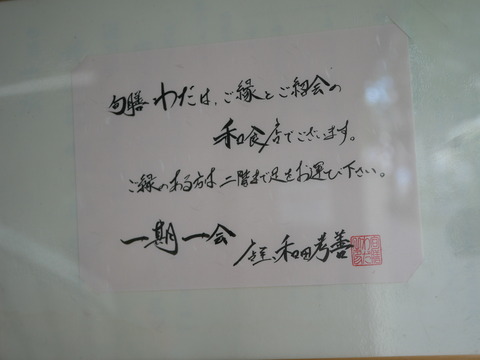 旬膳 わだは、ご縁とご紹介の
和食店でございます。
ご縁のある方は 二階まで足をお運び下さい。
一期一会
店主 和田孝善